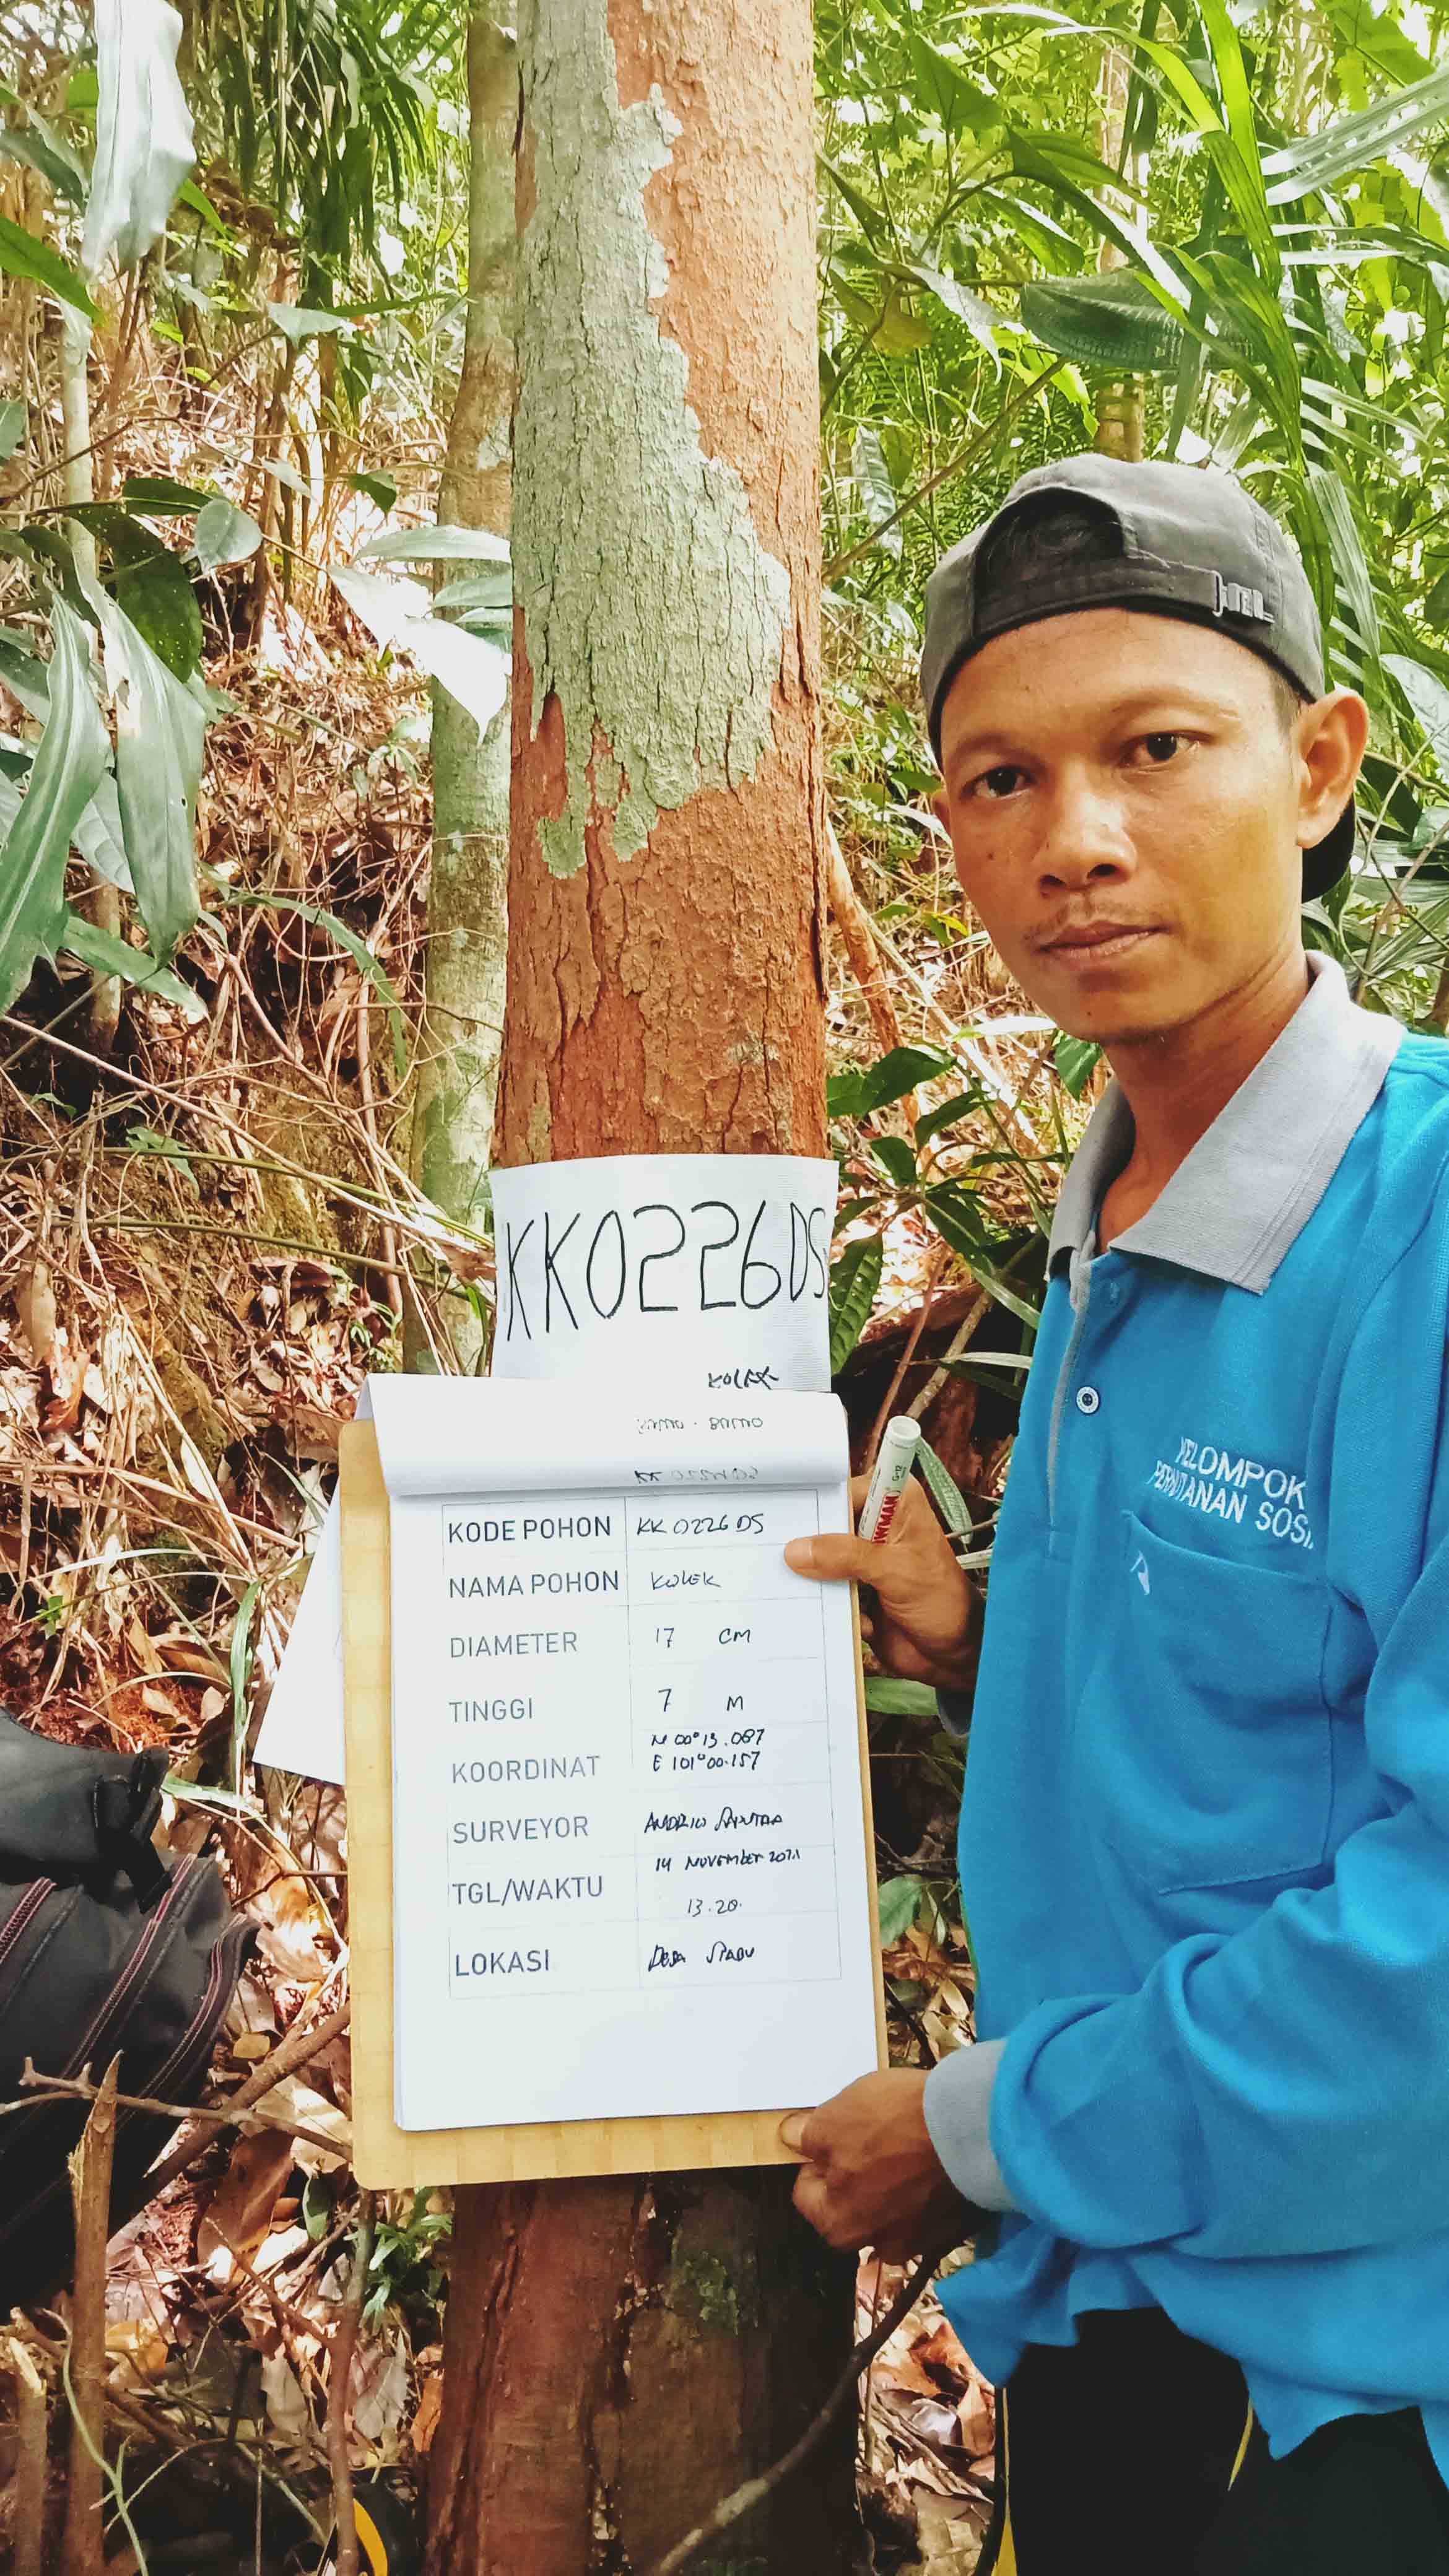 KK0226DS
KOLEK
KODE POHON KK 0226 DS
NAMA POHON KOLEK
DIAMETER 17 CM
TINGGI 7 M
KOORDINAT N 00° 13.087
E 101° 00.157
SURVEYOR
TGL/WAKTU 14 NOVEMBER 2021
13.20.
LOKASI DESA
KELOMPOK
PERHUTANAN SOSI